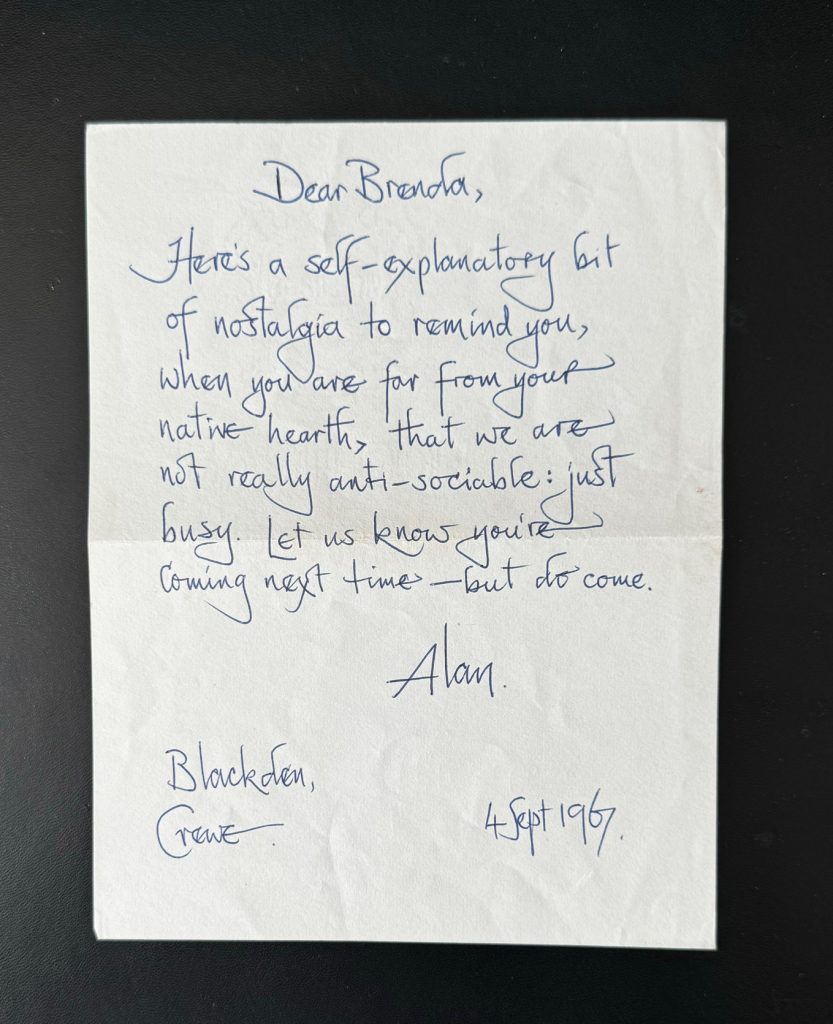 Dear Brenda,
Here's a self-explanatory bit
of nostalgia to remind you,
when you are far from your
native hearth, that we are
not really anti-sociable: just
busy. Let us know you're
coming next time – but do come.
Alan.
Blackden,
Crewe.
4 Sept 1967.